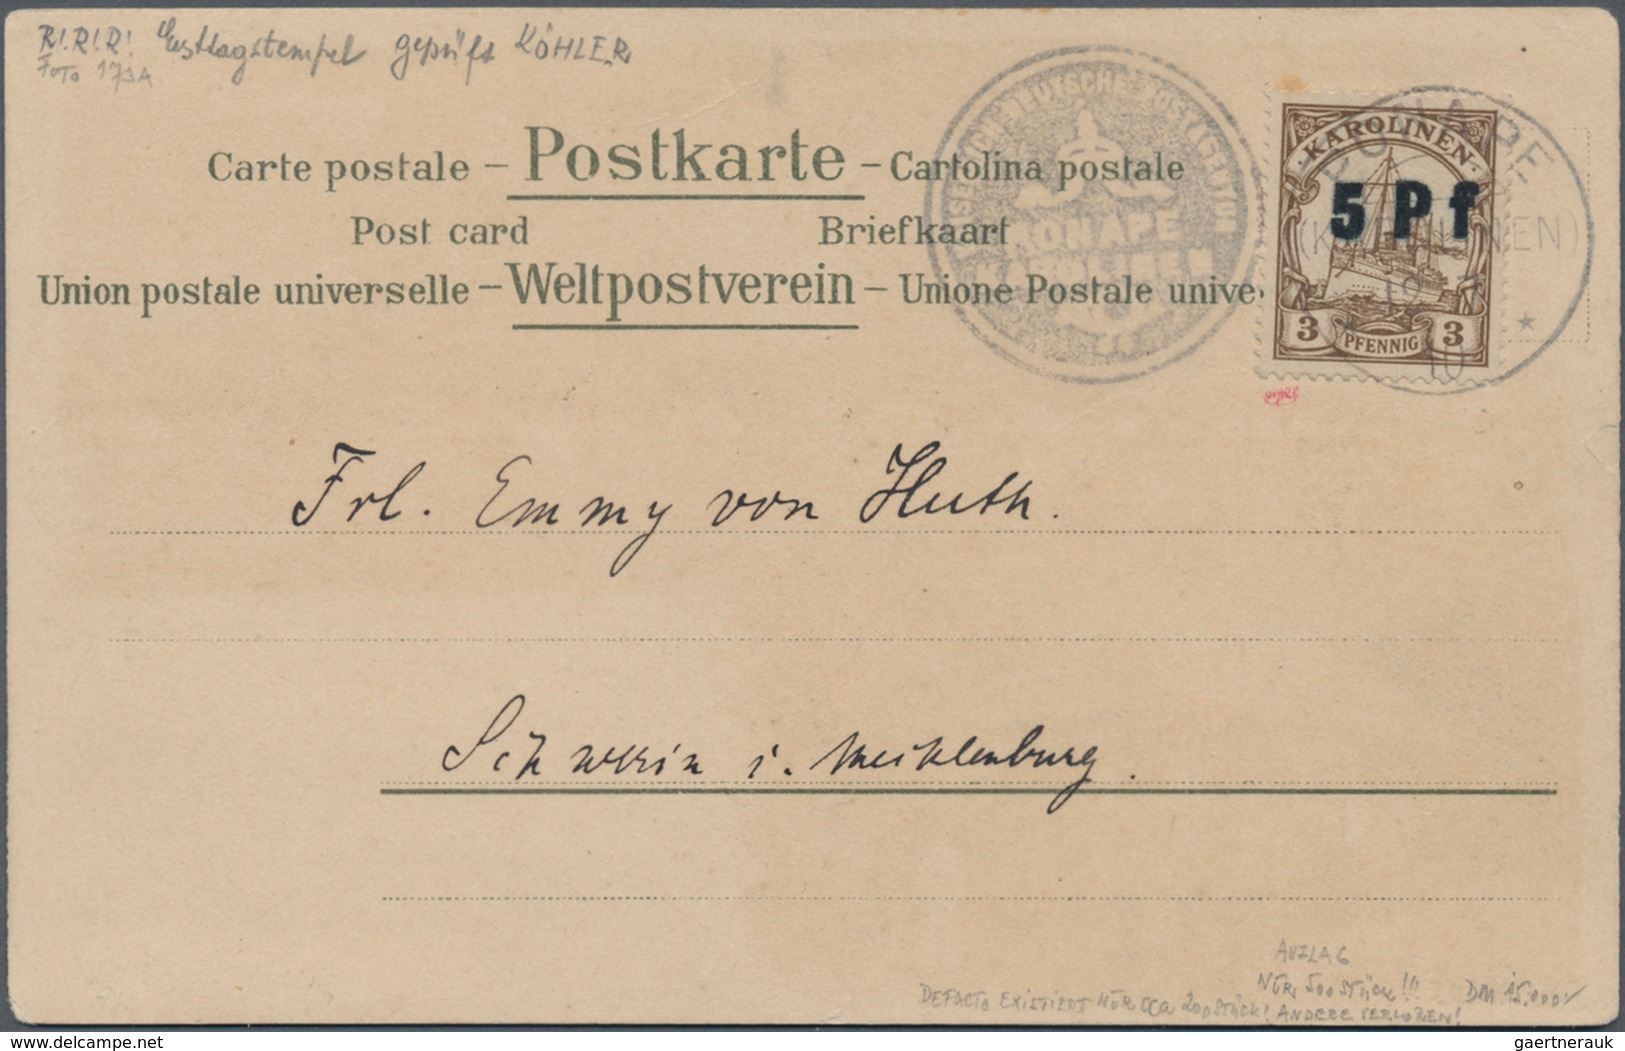 R!R!R! Ersttagstempel geprüft KÖHLER
FOTO 173A
Carte postale – Postkarte – Cartolina postale
Post card Briefkaart
Union postale universelle – Weltpostverein – Unione Postale unive
DEUTSCHE POSTAGENTUR
PONAPE
KAROLINEN
KAROLINEN
5 Pf
3 PFENNIG 3
PONAPE
(KAROLINEN)
10
Frl. Emmy von Huth.
Schwerin i. Mecklenburg.
AUFLAGE
NUR 500 STÜCK!!! DM 15.000.-
DEFACTO EXISTIERT NUR CCA 200 STÜCK! ANDERE VERLOREN!
gaertnerauk